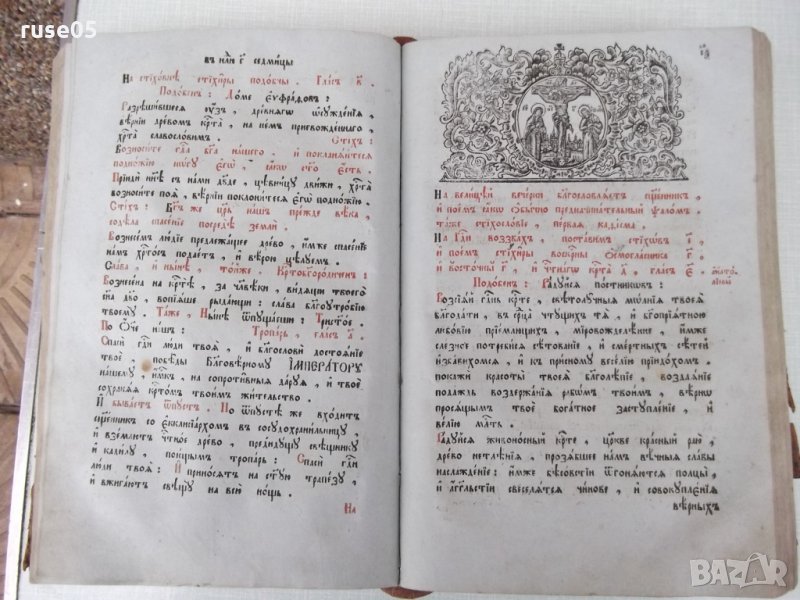 ruse05
въ нл҃ю г҃ седмицы
На стїховнѣ стїхиры подобны . Гласъ в҃ .
Подобенъ : Доме еѵфрадовъ :
Разрѣшившеся оузъ , древнягѡ ѡсужденїя ,
вѣрнїи древомъ крⷭ҇та , на немъ пригвожденнаго ,
хрⷭ҇та славословимъ . Стїхъ :
Возносите гдⷭ҇а бг҃а нашего . и покланяйтеся
подножїю нѡгу егѡ , ꙗкѡ ст҃о есть .
Прїиди нн҃ѣ съ нами дв҃де , цѣвницу движи , хрⷭ҇та
возносите поя , вѣрнїи поклонитеся егѡ подножїю .
Стїхъ : Бг҃ъ же цр҃ь нашъ прежде вѣка ,
содѣла спасенїе посредѣ земли .
Вознесемъ людїе предлежащее древо , имже спасенїе
намъ хрⷭ҇тосъ подаетъ , и вѣрою цѣлуемъ .
Слава , и нынѣ , тойже . Крⷭ҇тобг҃ородиченъ :
Вознесена на крⷭ҇тѣ , за чл҃вѣки , видящи твоего
сн҃а дв҃о , вопїяше рыдающи : слава бл҃гоутробїю
твоему . Таже , Нынѣ ѿпущаеши : Трист҃ое .
По Оч҃е нашъ : Тропарь , гласъ а҃ .
Спаси гдⷭ҇и люди твоя , и бл҃гослови достоянїе
твое , побѣды Бл҃говѣрному ІМПЕРАТОРУ
нашему , имⷬ҇къ , на сопротивныя даруя , и твое
сохраняя крⷭ҇томъ твоимъ жительство .
И бываетъ ѿпустъ . По ѿпустѣ же входитъ
сщ҃енникъ со екклисїархомъ въ сосудохранильницу ,
и вземлитъ чⷭ҇тное древо , предидущу свѣщнику
и кадилу , поющымъ тропарь : Спаси гдⷭ҇и
люди твоя : И приносятъ на ст҃ую трапезу ,
и вжигаютъ свѣщу на всю нощь .
На
На велицѣй вечерни бл҃гословляетъ сщ҃енникъ ,
и поемъ ꙗкѡ обычно предначинательный ѱаломъ .
таже стїхословїе , первая каѳїсма .
На Гдⷭ҇и воззвахъ , поставимъ стїхѡвъ і҃ ,
и поемъ стїхиры воскрⷭ҇ны осмогласника г҃ .
и восточный г҃ , и чⷭ҇тнагѡ крⷭ҇та д҃ , гласъ е҃ .
Подобенъ : Радуйся постникѡвъ :
Возсїяй гдⷭ҇нь крⷭ҇те , свѣтолучныя мѡлнїя твоея
бл҃годати , въ срⷣ҇ца чтущихъ тя , и бг҃опрїятною
любовїю прїемлющихъ , мїровожделѣнне , имже
слезное потребися сѣтованїе , и смертныхъ сѣтей
избавихомся , и къ присному веселїю прїидохомъ .
покажи красоты твоея бл҃голѣпїе , воздаянїе
подаждь воздержанїя рабѡмъ твоимъ , вѣрнѡ
просящымъ твое богатное заступленїе , и
велїю млⷭ҇ть .
Радуйся живоносный крⷭ҇те , цр҃кве красный раю ,
древо нетлѣнїя , прозябшее намъ вѣчныя славы
наслажденїе : имже бѣсовстїи ѿгоняются полцы ,
и агг҃льстїи свеселятся чинове , и совокупленїя
вѣрныхъ
BAZAR